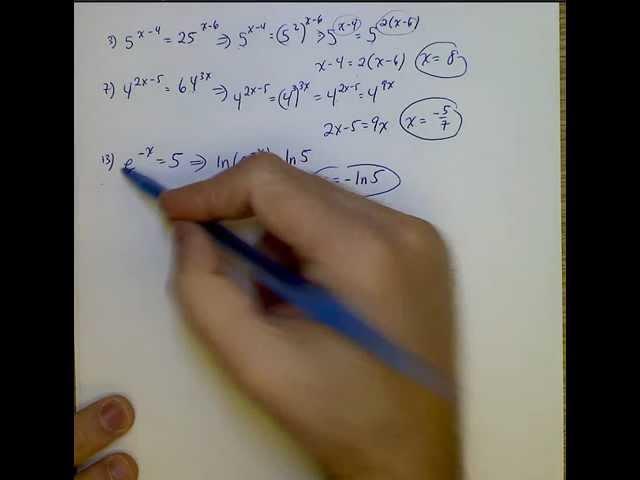 3) 5^{x-4} = 25^{x-6} ⇒ 5^{x-4} = (5^2)^{x-6} ⇒ 5^{x-4} = 5^{2(x-6)}
x-4 = 2(x-6) x = 8
7) 4^{2x-5} = 64^{3x} ⇒ 4^{2x-5} = (4^3)^{3x} = 4^{2x-5} = 4^{9x}
2x-5 = 9x x = -5/7
13) e^{-x} = 5 ⇒ ln( ln 5
= -ln 5